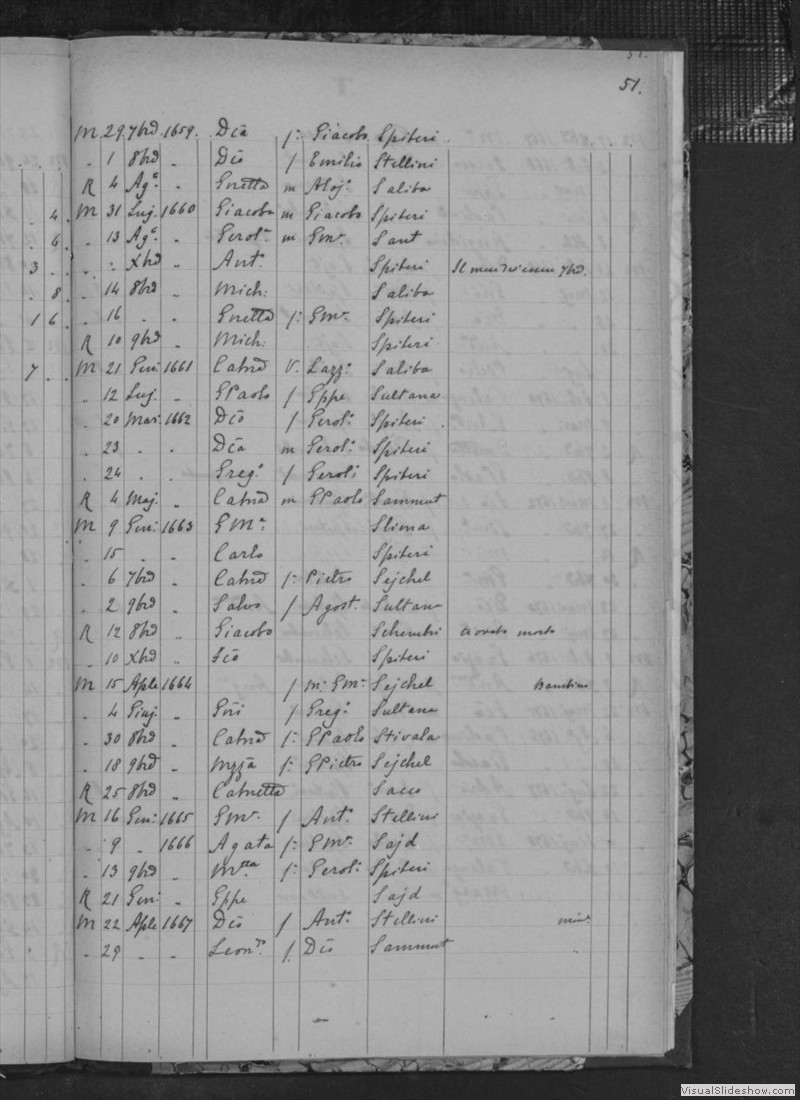 51.
M. 29 7bre 1659. Dca f: Giacobo Spiteri.
. 1 8bre „ Dco f Emilio Stellini
R 4 Ago. „ Gnetta m Aloj: Saliba
4. M 31 Lug. 1660 Giacoba m Giacobo Spiteri
6. . 13 Ago. „ Gerol: m GMa. Sant
3 . . „ Xbre „ Ant. Spiteri Il men dicesem 7bre.
8. . 14 8bre „ Mich: Saliba
1 6. . 16 „ „ Gnetta f: GMa. Spiteri
R 10 9bre „ Mich: Spiteri
7 . . M 21 Gen: 1661 Catna V. Lazz: Saliba
. 12 Lug. „ GPaolo f Gppe Sultana
. 20 Mar. 1662 Dco f Gerol: Spiteri.
. 23 „ „ Dca m Gerol: Spiteri
. 24 „ „ Greg: f Gerol: Spiteri
R 4 Maj. „ Catna m GPaolo Sammut
M 9 Gen: 1663 GMa. Slima
. 15 „ „ Carlo Spiteri
. 6 7bre „ Catna f: Pietro Sejchel
. 2 9bre „ Salvo f Agost. Sultana
R 12 8bre „ Giacobo Schembri trovato morto
. 10 Xbre „ Fco Spiteri
M 15 Aple 1664 f m: GMa: Sejchel bambino
. 4 Giuj. „ Gni f Greg: Sultana
. 30 8bre „ Catna f: GPaolo Stivala
. 18 9bre „ Mzza f: GPietro Sejchel
R 25 8bre „ Catnetta Sacco
M 16 Gen: 1665 GMa. f Ant. Stellini
. 9 „ 1666 Agata f: GMa. Sajd
. 13 9bre „ Mtta f: Gerol: Spiteri
R 21 Gen: „ Gppe Sajd
M 22 Aple 1667 Dco f Ant. Stellini min:
. 29 „ „ Leonza f. Dco Sammut
VisualSlideshow.com